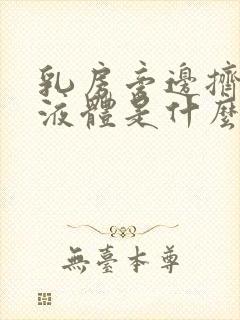 乳房旁邊擠
液體是什麼
無臺本尊